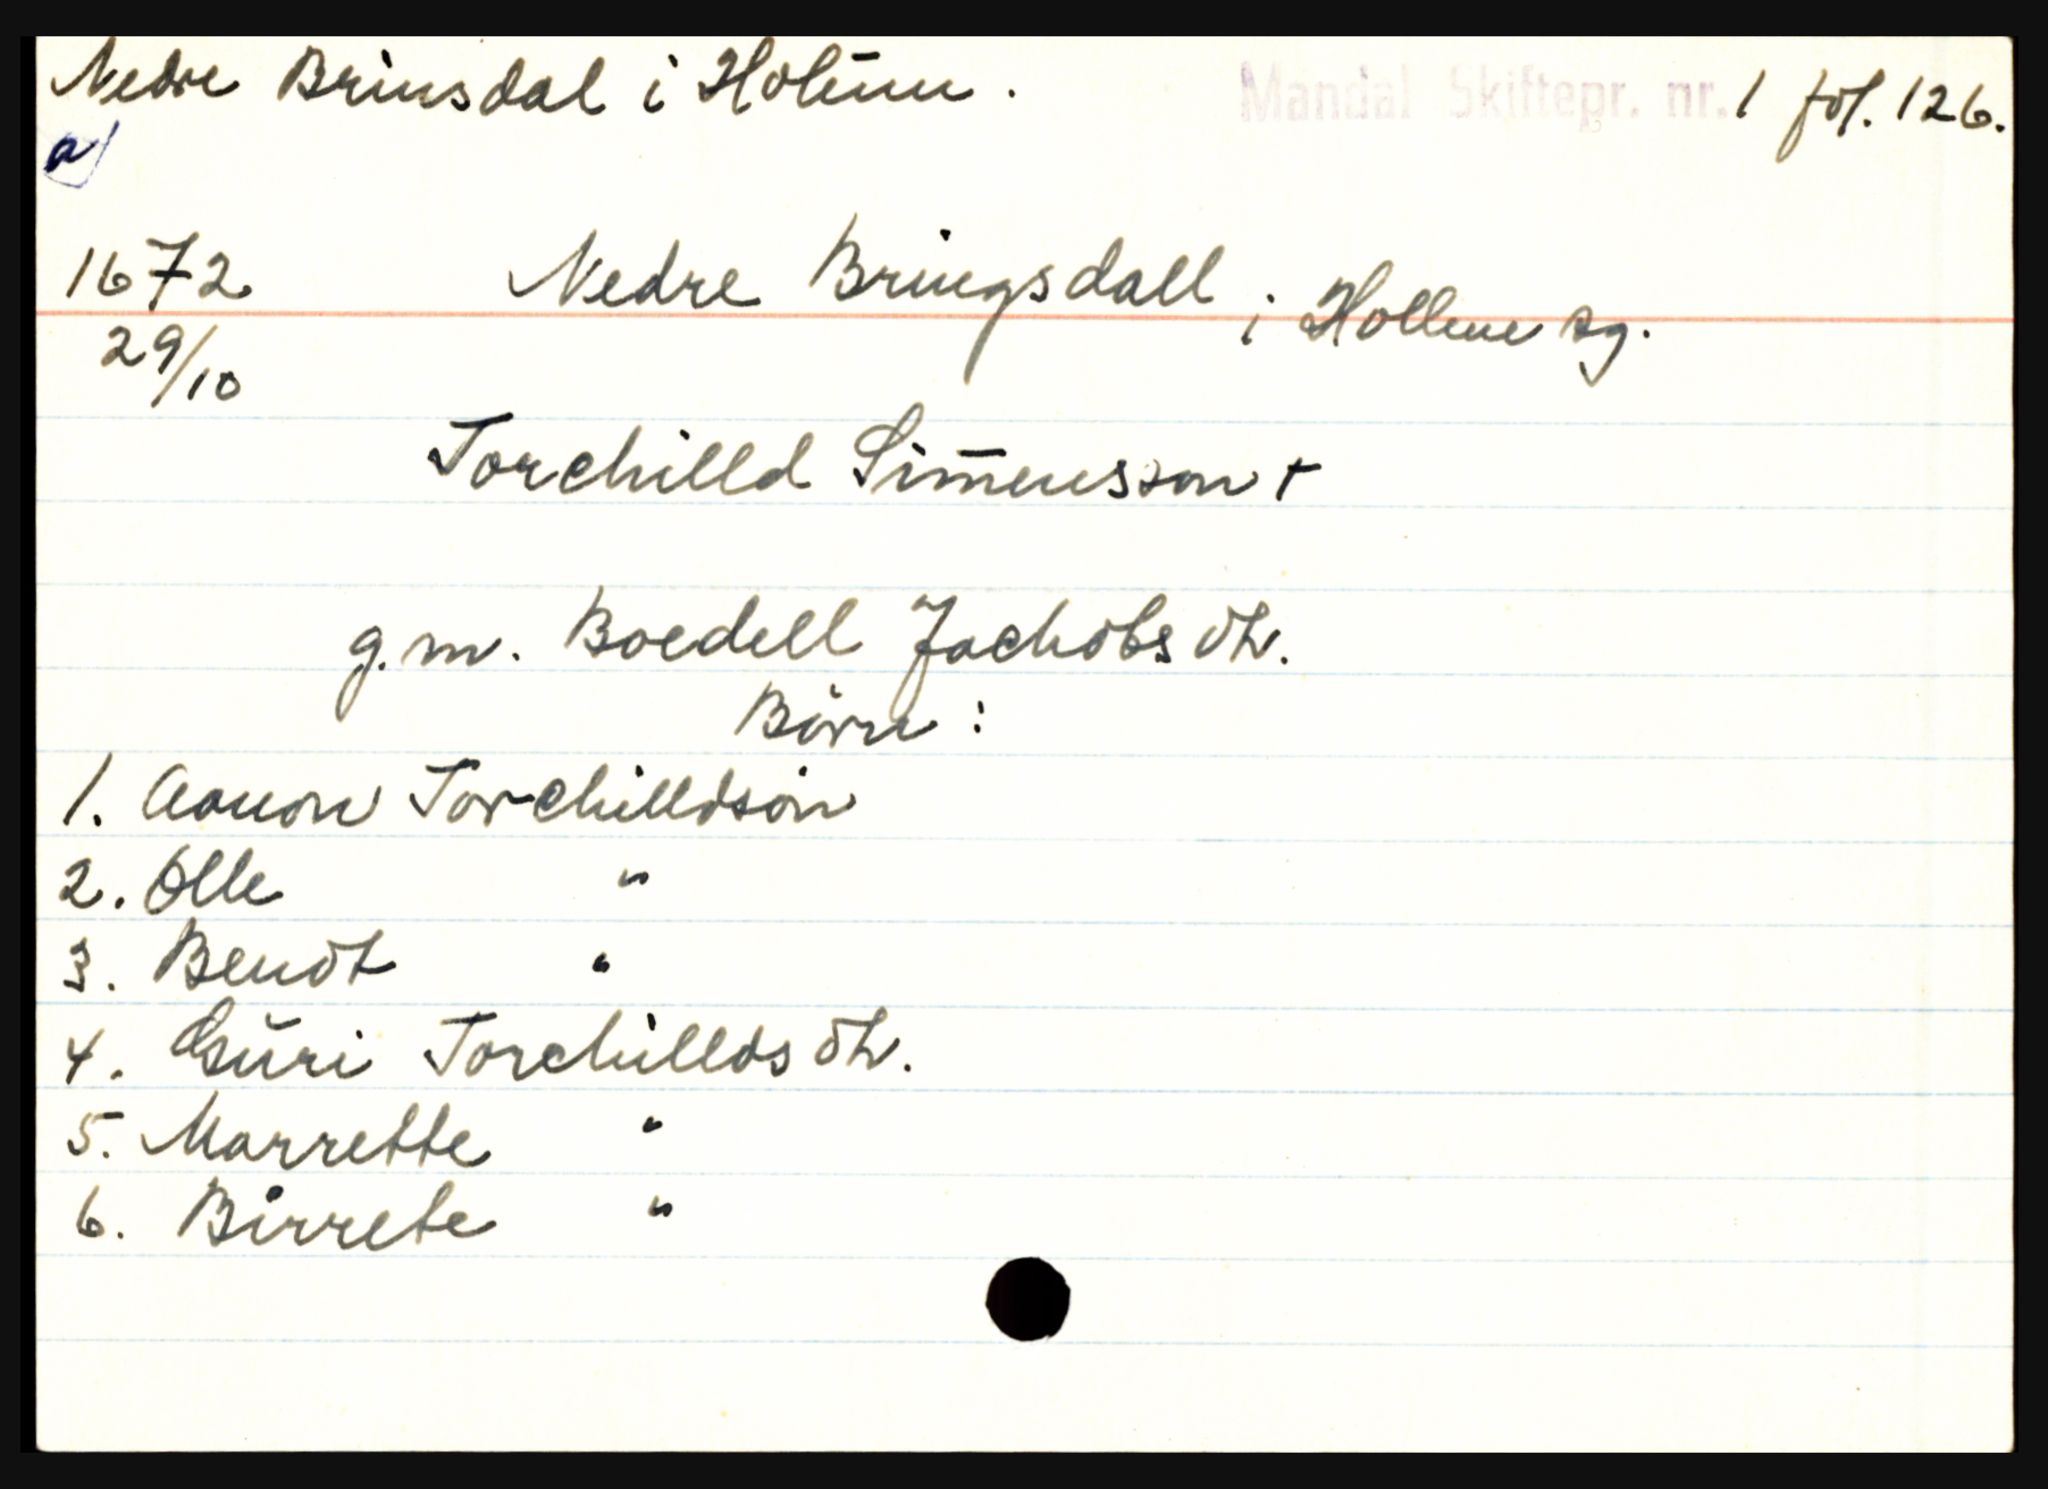 Nedre Brinsdal i Holum. Mandal Skiftepr. nr. 1 fol. 126.
a)
1672 Nedre Bringsdall i Hollme sg.
29/10
Torchilld Simensson +
g.m. Boedell Jachobsdtr.
Börn:
1. Aanon Torchilldsön
2. Olle "
3. Bendt "
4. Guri Torchilldsdtr.
5. Marrette "
6. Birrete "